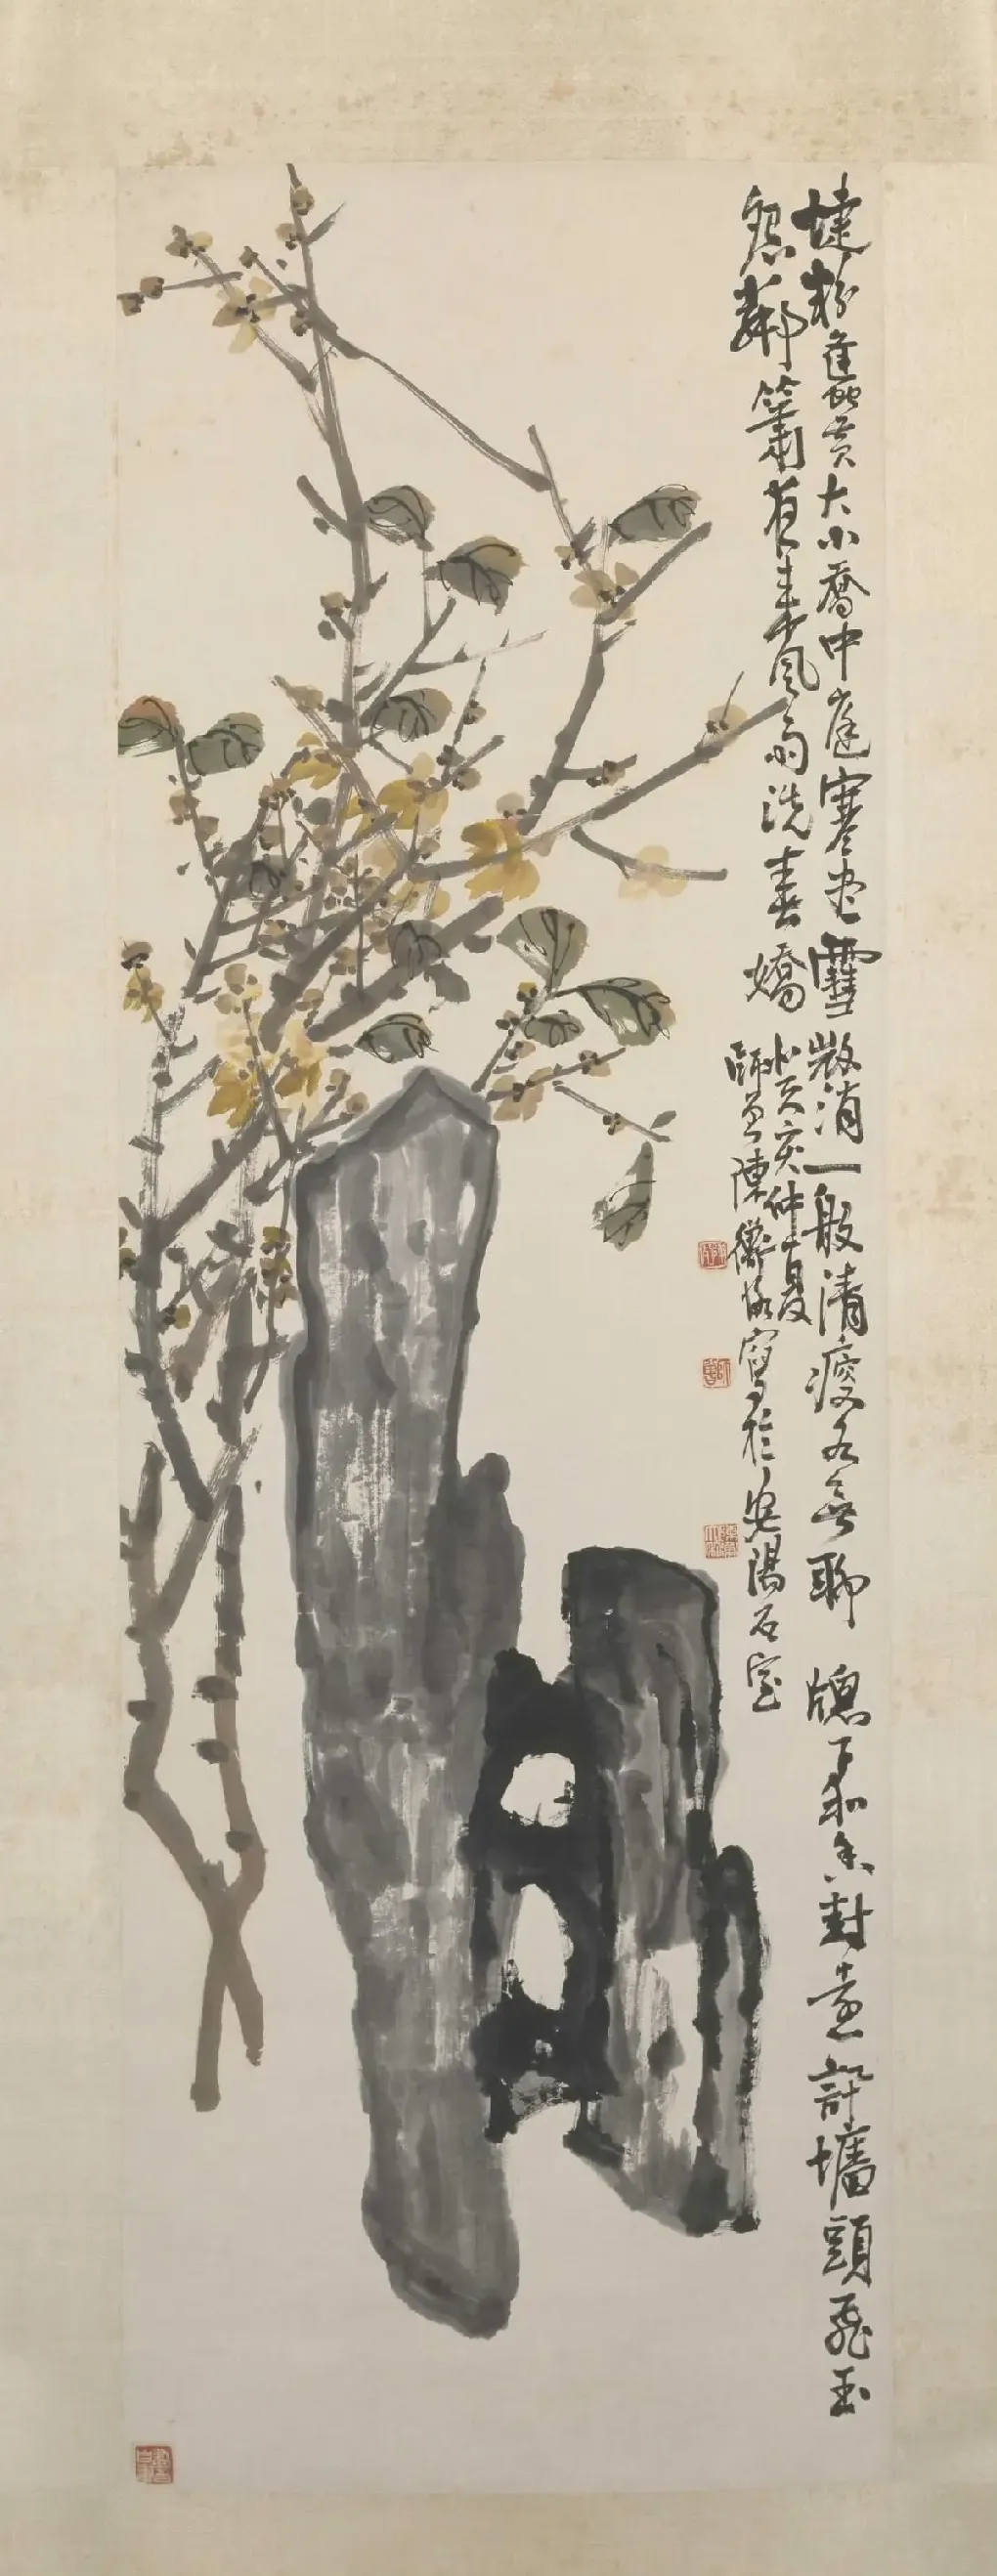 蜨粉蠭黃大小喬中庭寒盡雪微消一般清瘦各無聊 牕下和香封遠訊墻頭飛玉
怨鄰簫夜來風雨洗春嬌 癸亥仲夏
師曾陳衡恪寫於安陽石室